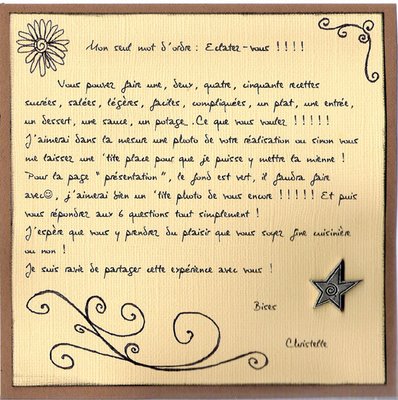 Mon seul mot d'ordre : Eclatez-vous !!!!
Vous pouvez faire une, deux, quatre, cinquante recettes
sucrées, salées, légères, faciles, compliquées, un plat, une entrée,
un dessert, une sauce, un potage..Ce que vous voulez !!!!!
J'aimerai dans la mesure une photo de votre réalisation ou sinon vous
me laissez une 'tite place pour que je puisse y mettre la mienne !
Pour la page "présentation", le fond est vert, il faudra faire
avec☺, j'aimerai bien un 'tite photo de vous encore !!!!! Et puis
vous répondrez aux 6 questions tout simplement !
J'espère que vous y prendrez du plaisir que vous soyez fine cuisinière
ou non !
Je suis ravie de partager cette expérience avec vous !
Bises
Christelle